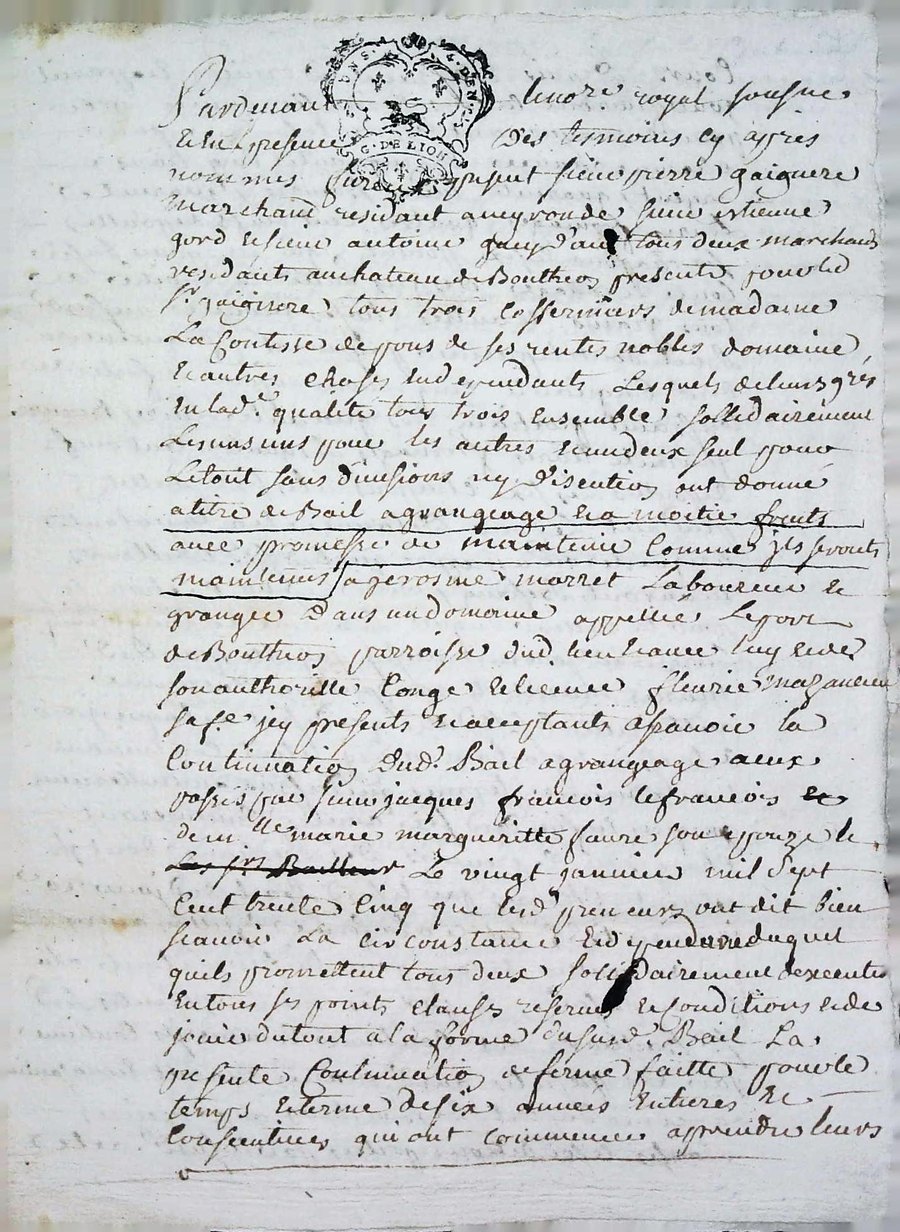 Pardevant le nore royal soussne
G. DE LION
et en presence des temoins cy apres
nommes furent present sieur pierre gaignere
marchand residant a meyronde sieur estienne
gord et sieur antoine tous deux marchands
residants au chateau de Boutheon presente pour led
sr gaignere tous trois cossermiers de madame
La Contesse de pons de ses rentes nobles domaine
et autres choses en dependants, Lesquels de leurs gres
en lad.e qualité tous trois ensemble sollidairement
Les uns pour les autres et un deux seul pour
Le tout sans divisions ny discution ont donné
a titre de Bail a grangeage et a moitie fruits
avec promesse de maintenir comme jls seronts
maintenus a jerosme marret Laboureur et
granger dans un domaine appellée Le port
de Boutheon parroisse dud. lieu et avec luy et de
son authoritte Congé et licence fleurie mazancieu
sa fe. jcy presents et acceptants assavoir la
Continuation dud. Bail a grangeage a eux
passés par sieur jacques francois lefrancois et
dem.lle marie margueritte faure son epouze le
Les srs Bailleur Le vingt janvier mil sept
Cent trente Cinq que lesd. preneurs ont dit bien
scavoir La circonstance et dependance duquel
quils promettent tous deux sollidairement dexecuter
en tous ses points clauses reserves et conditions et de
jouir du tout a la forme dususd. Bail La
presente Continuation de ferme faitte pour le
temps et terme de six années entieres et
Consecutives qui ont commencer a prendre leurs